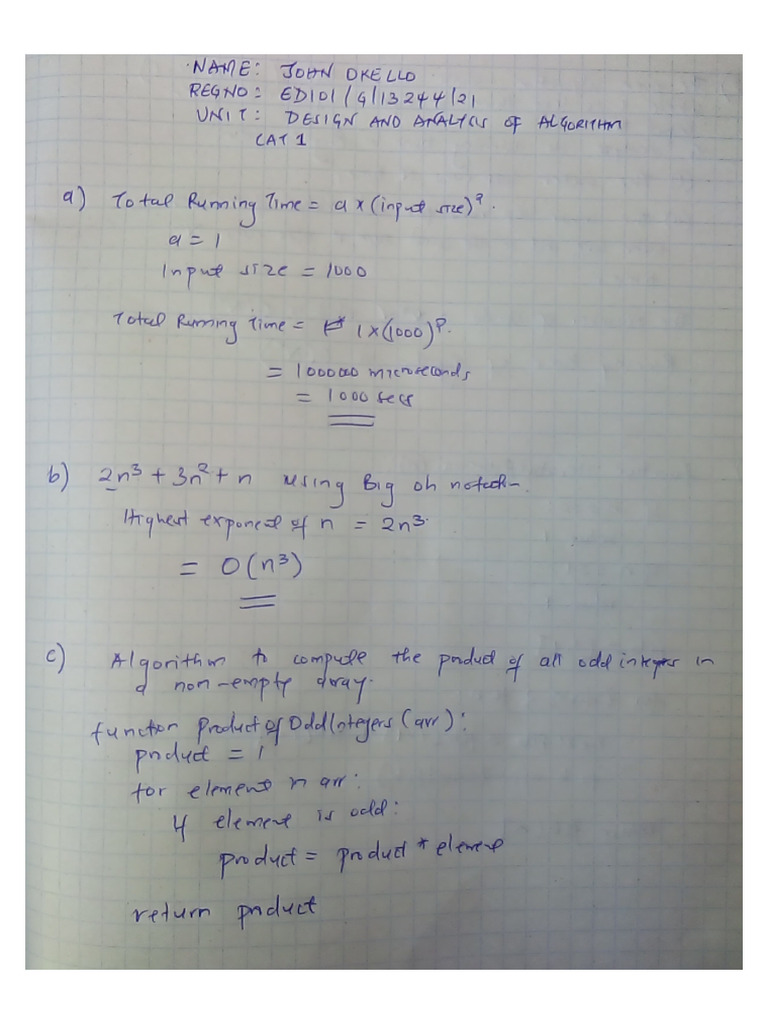 NAME: JOHN OKELLO
REGNO: ED101/G/13244/21
UNIT: DESIGN AND ANALYSIS OF ALGORITHM
CAT 1
a) Total Running Time = a x (input size)^q.
a = 1
Input size = 1000
Total Running Time = 1 x (1000)^q.
= 1000000 microseconds
= 1000 secs
b) 2n³ + 3n² + n using Big oh
Highest exponent of n = 2n³.
= O(n³)
c) Algorithm to compute the product of all odd integers in
a non-empty array.
function ProductOfOddIntegers (arr):
product = 1
for element in arr:
if element is odd:
product = product * element
return product